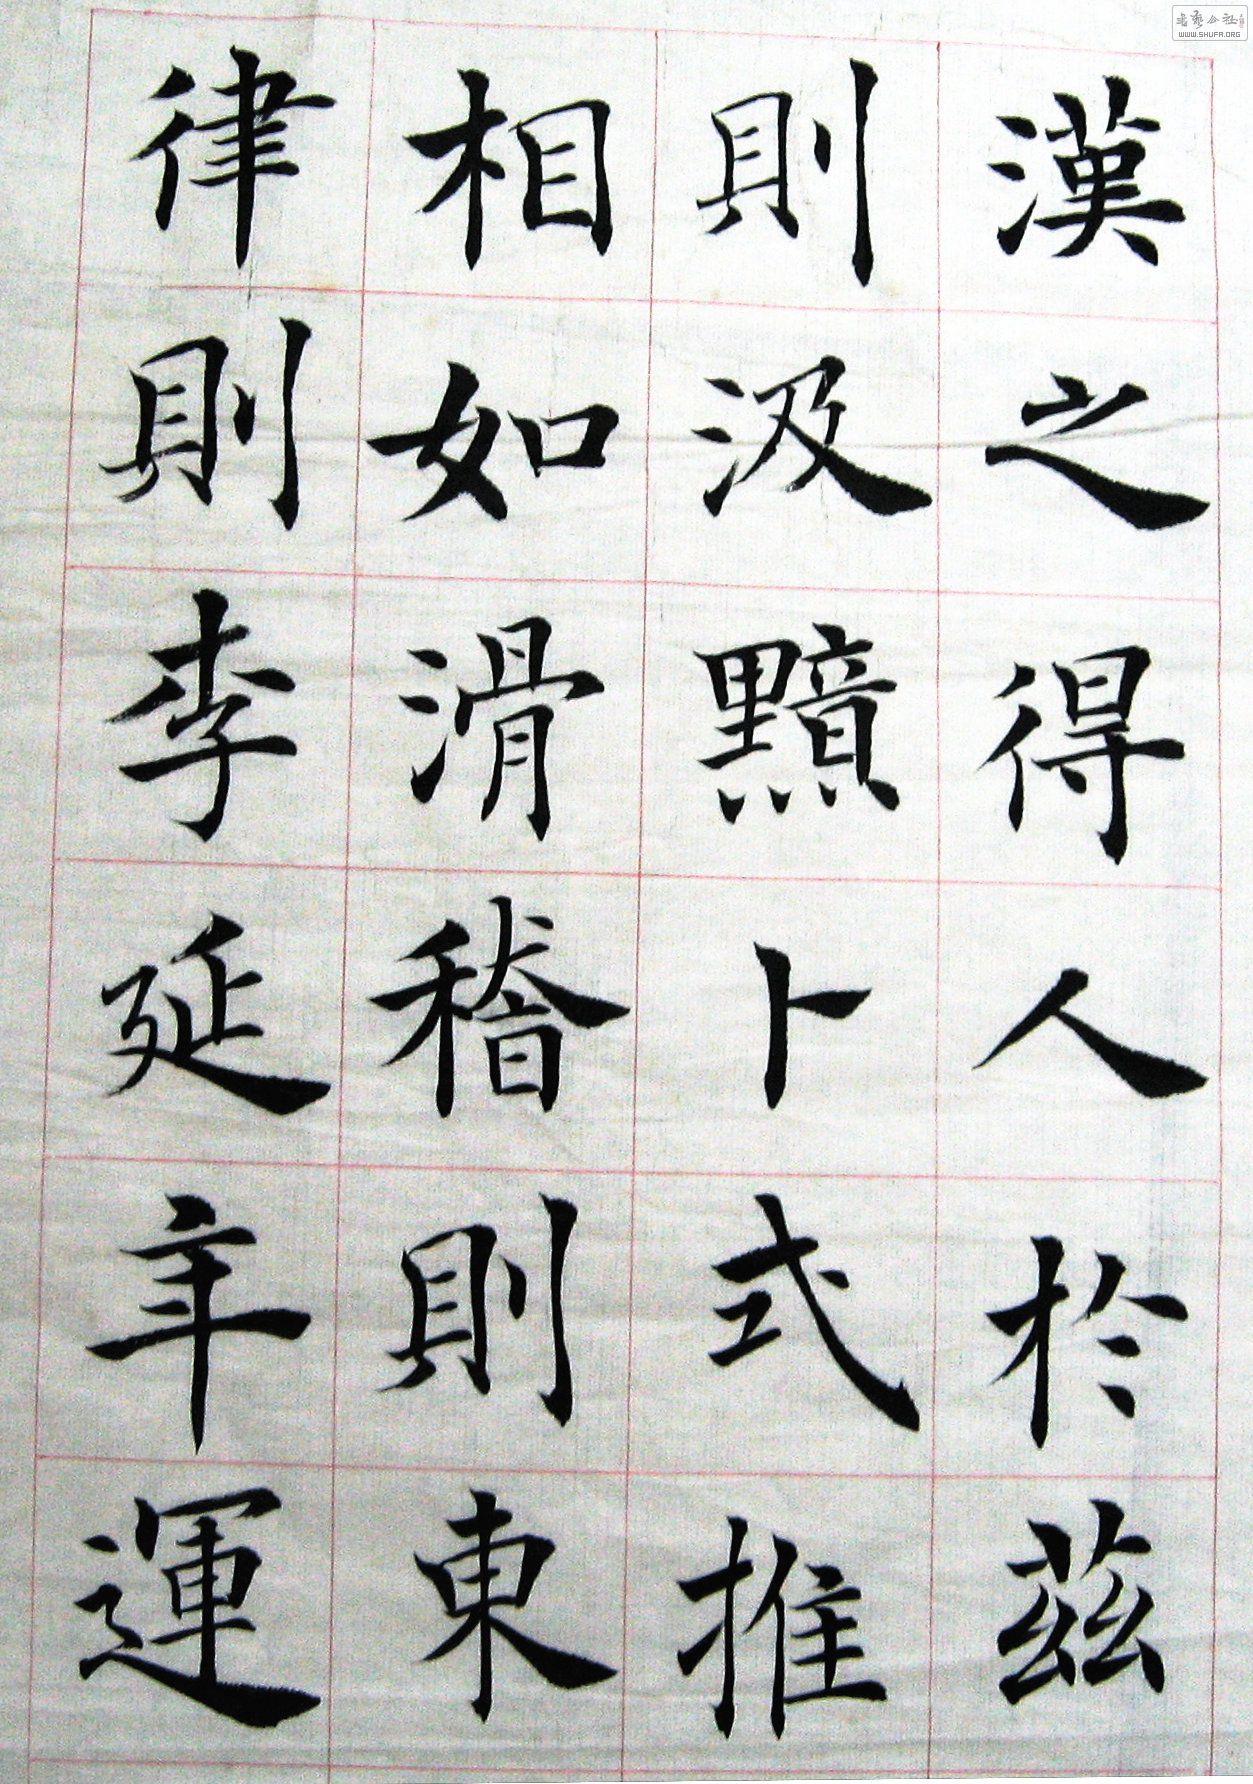 漢之得人於茲
則汲黯卜式推
相如滑稽則東
律則李延年運
WWW.SHUFA.ORG